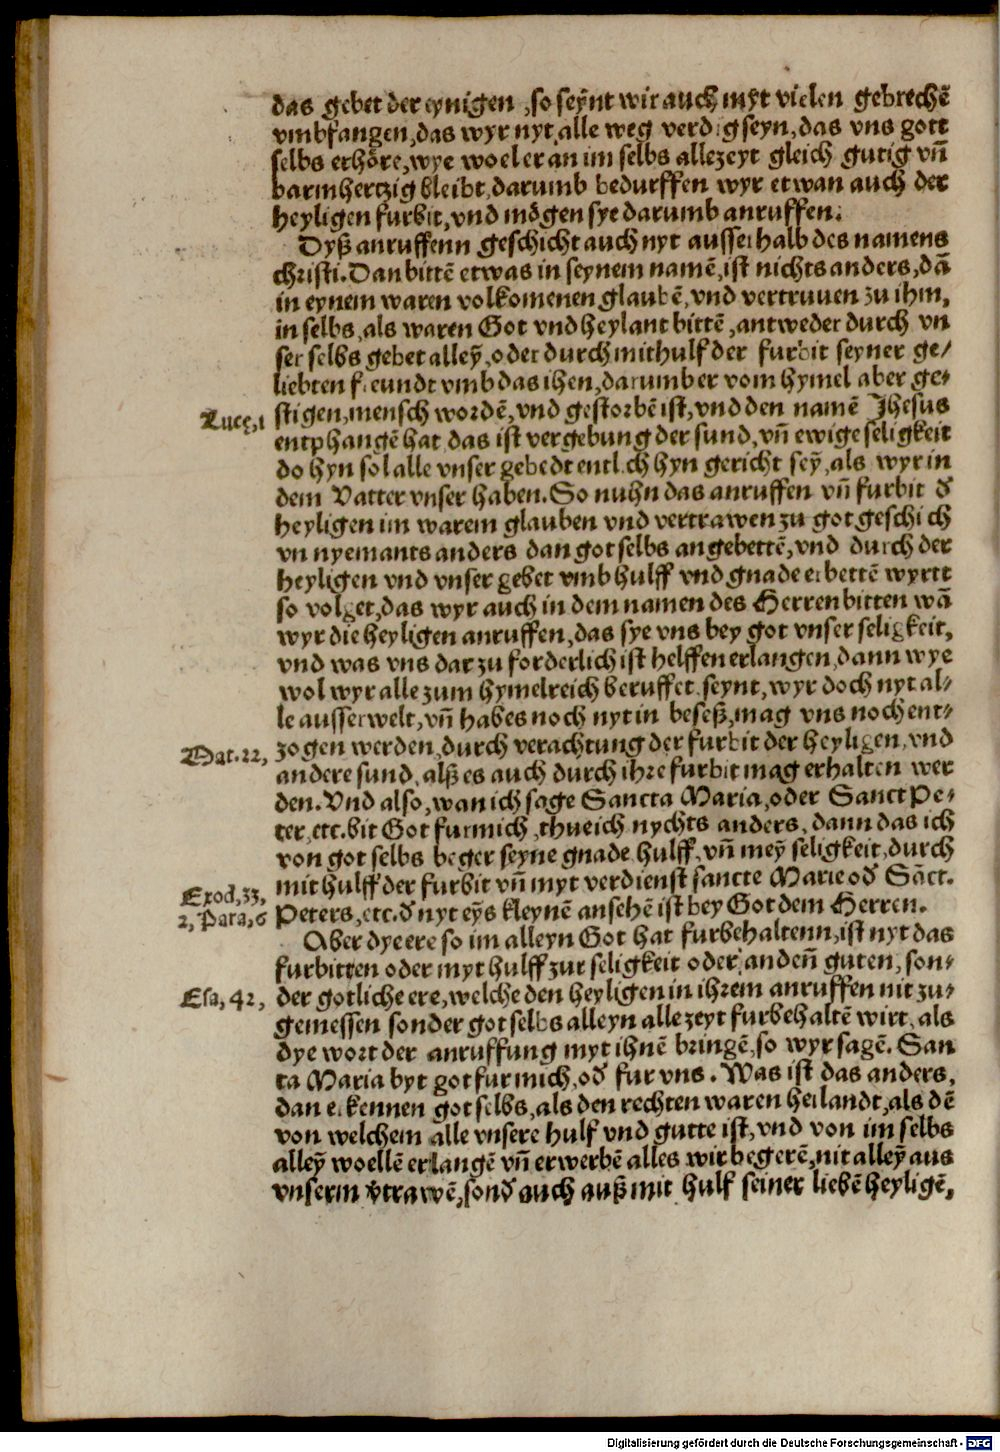 das gebet der eynigen, so seynt wir auch myt vielen gebrechē
vmbfangen, das wyr nyt alle weg verdig seyn, das vns gott
selbs erhöre, wye woel er an im selbs allezeyt gleich gutig vn̄
barmhertzig bleibt, darumb bedurffen wyr etwan auch der
heyligen furbit, vnd mögen sye darumb anruffen.
Dyß anruffenn geschicht auch nyt ausserhalb des namens
christi. Dan bittē etwas in seynem namē, ist nichts anders, dā
in eynem waren volkomenen glaubē, vnd vertruuen zu ihm,
in selbs, als waren Got vnd heylant bittē, antweder durch vn
ser selbs gebet alleȳ, oder durch mithulf der furbit seyner ge/
liebten freundt vmb das ihen, darumb er vom hymel aber ge/
Luce, 1 stigen, mensch wordē, vnd gestorbē ist, vnd den namē Jhesus
entphangē hat das ist vergebung der sund, vn̄ ewige seligkeit
do hyn sol alle vnser gebedt entlich hyn gericht seȳ, als wyr in
dem Vatter vnser haben. So nuhn das anruffen vn̄ furbit d̄
heyligen im warem glauben vnd vertrawen zu got geschich
vn nyemants anders dan got selbs angebettē, vnd durch der
heyligen vnd vnser gebet vmb hulff vnd gnade erbettē wyrtt
so volget, das wyr auch in dem namen des Herren bitten wā
wyr die heyligen anruffen, das sye vns bey got vnser seligkeit,
vnd was vns dar zu forderlich ist helffen erlangen, dann wye
wol wyr alle zum hymelreich beruffet seynt, wyr doch nyt al/
le ausserwelt, vn̄ habes noch nyt in beseß, mag vns noch ent/
Mat. 22, zogen werden, durch verachtung der furbit der heyligen, vnd
andere sund, alß es auch durch ihre furbit mag erhalten wer
den. Vnd also, wan ich sage Sancta Maria, oder Sanct Pe/
ter, etc. bit Got fur mich, thue ich nychts anders, dann das ich
von got selbs beger seyne gnade hulff, vn̄ meȳ seligkeit, durch
Exod, 33, mit hulff der furbit vn̄ myt verdienst sancte Marie od̄ Sāct.
2, Para, 6 Peters, etc. d̄ nyt eȳs kleynē ansehē ist bey Got dem Herren.
Aber dye ere so im alleyn Got hat furbehaltenn, ist nyt das
furbitten oder myt hulff zur seligkeit oder anden̄ guten, son/
Esa, 42, der gotliche ere, welche den heyligen in ihrem anruffen nit zu/
gemessen sonder got selbs alleyn alle zeyt furbehaltē wirt, als
dye wort der anruffung myt ihnē bringē, so wyr sagē. San
ta Maria byt got fur mich, od̄ fur vns. Was ist das anders,
dan erkennen got selbs, als den rechten waren heilandt, als dē
von welchem alle vnsere hulf vnd gutte ist, vnd von im selbs
alleȳ woellē erlangē vn̄ erwerbē alles wir begerē, nit alleȳ aus
vnserm v̄trawē, sond̄ auch auß mit hulf seiner liebē heyligē,
Digitalisierung gefördert durch die Deutsche Forschungsgemeinschaft - DFG